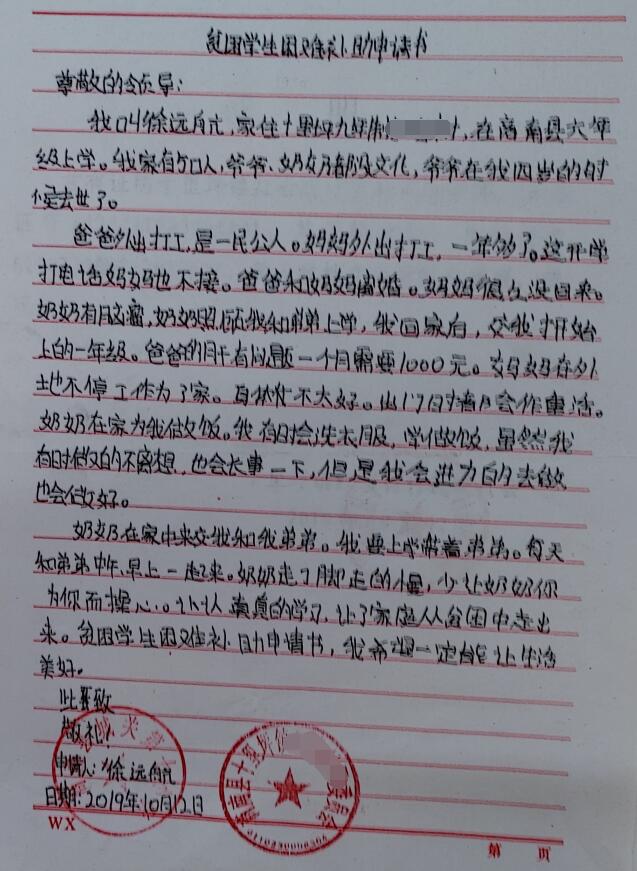 贫困学生困难补助申请书
尊敬的领导:
我叫徐远航,家住十里坪九年制,在商南县六年
级上学。我家有5口人,爷爷、奶奶都没文化,爷爷在我四岁的时
候去世了。
爸爸外出打工,是一民公人。妈妈外出打工,一年够了。这开学
打电话妈妈也不接。爸爸和妈妈离婚。妈妈很久没回来。
奶奶有脑瘤,奶奶照顾我和弟弟上学,我回家后,交我才开始
上的一年级。爸爸的肝有问题一个月需要1000元。妈妈在外
地不停工作为了家。身体忙不太好。出门时候会作重活。
奶奶在家为我做饭。我有时会洗衣服,学做饭,虽然我
有时做的不离想,也会长事一下,但是我会进力的去做
也会做好。
奶奶在家中来交我和我弟弟。我要上学带着弟弟。每天
和弟弟中午、早上一起来。奶奶走了脚走的慢,少让奶奶你
为你而操心。让认真真的学习,让了家庭从贫困中走出
来。贫困学生困难补助申请书,我希望一定能让生活
美好。
此致
敬礼!
申请人:徐远航
日期:2019年10月12日
商南县十里坪
WX
第 页